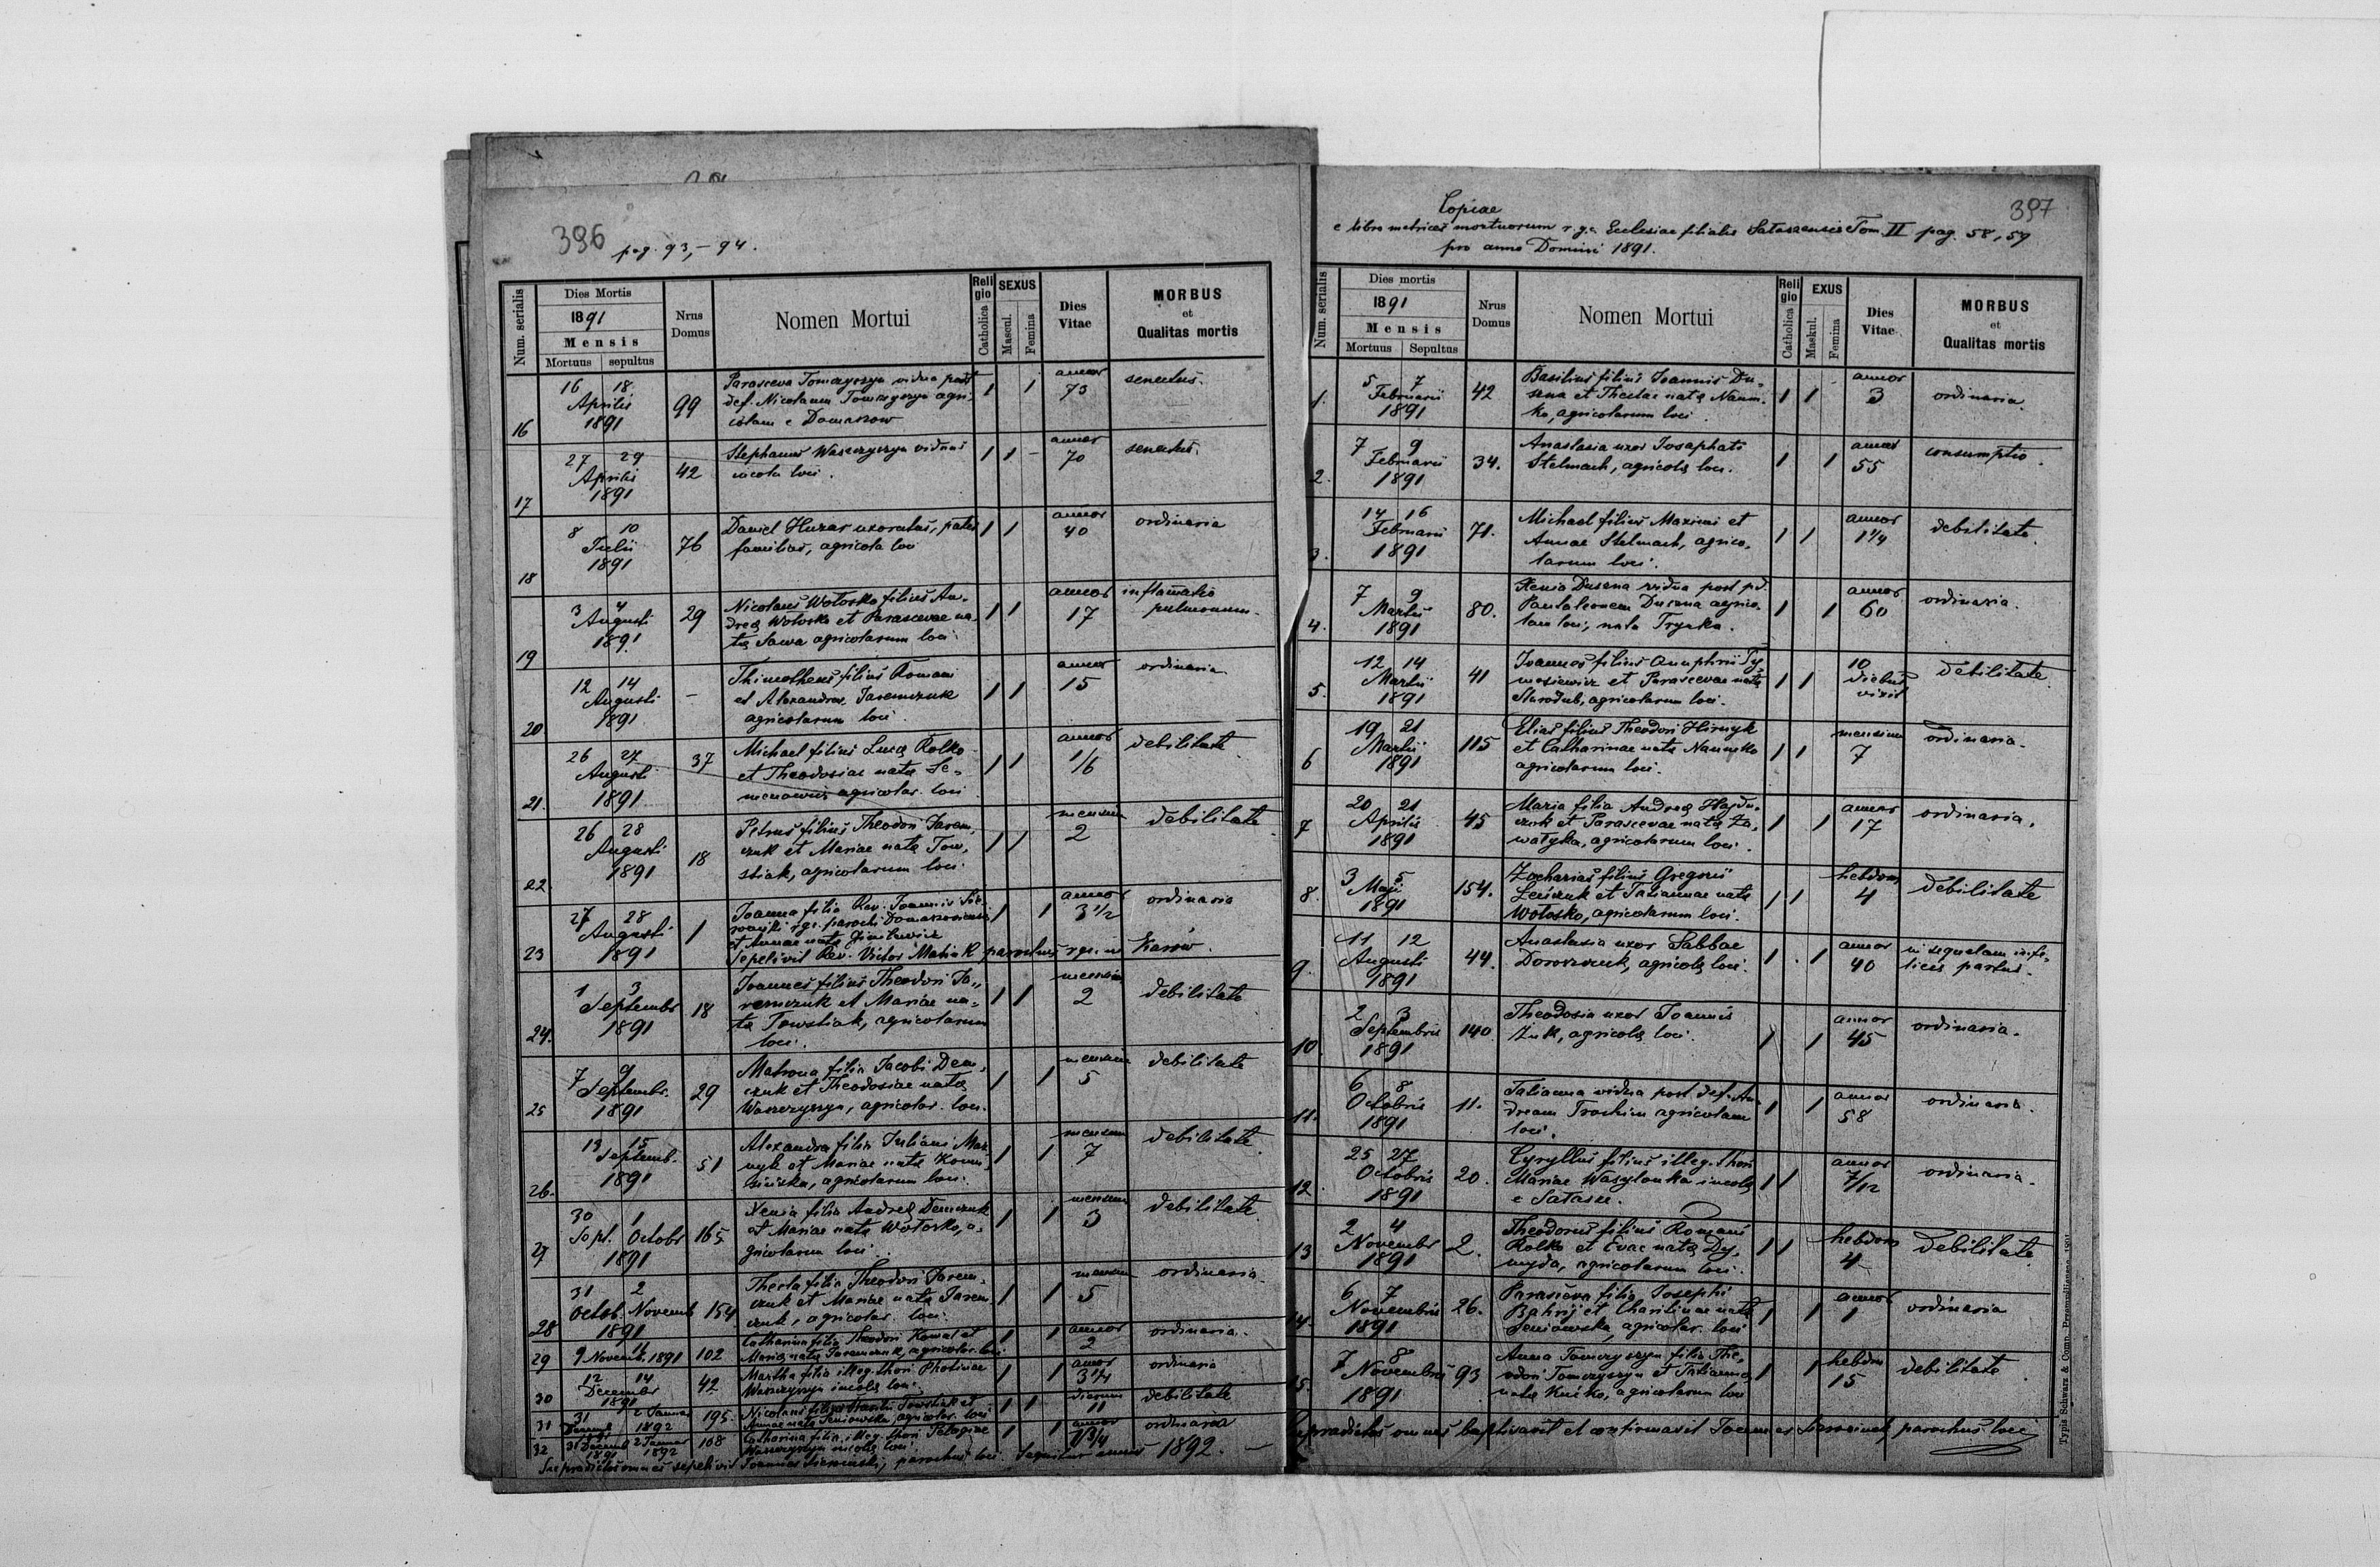 396 pag. 93,-94.
Num. serialis
Dies Mortis
1891
Mensis
Mortuus sepultus
Nrus Domus
Nomen Mortui
Religio
Catholica
SEXUS
Mascul.
Femina
Dies Vitae
MORBUS
et
Qualitas mortis
16 16 18 Aprilis 1891 99 Parasceva Tomczyszyn vidua post 1 1 annor 73 senectus.
def. Nicolaum Tomczyszyn agri-
colam e Domaszow
17 27 29 Aprilis 1891 42 Stephanus Waszczyszyn viduus 1 1 - annor 70 senectus.
incola loci.
18 8 10 Julii 1891 76 Daniel Huzar uxoratus, pater 1 1 annor 40 ordinaria
familias, agricola loci
19 3 4 Augusti 1891 29 Nicolaus Wołosko filius An- 1 1 annor 17 inflamatio pulmonum.
dreę Wołosko et Parascevae na-
tę Sawa agricolarum loci
20 12 14 Augusti 1891 - Thimotheus filius Romani 1 1 annor 15 ordinaria
et Alexandrae Jaremczuk
agricolarum loci.
21. 26 27 Augusti 1891 37 Michael filius Lucę Rolko 1 1 annor 1/6 debilitate
et Theodosiae natę Se-
agricolar. loci
22. 26 28 Augusti 1891 18 Petrus filius Theodori Jarem- 1 1 mensium 2 debilitate
czuk et Mariae natę Tow-
stiak, agricolarum loci
23 27 28 Augusti 1891 1 Joanna filia Rev. Joannis 1 1 annor 3 1/2 ordinaria
r.gr. parochi Domaszoviensis
et Annae natę
Sepelivit Rev. Victor Matiuk parochus r.gr. in Karów.
24. 1 3 Septembr 1891 18 Joannes filius Theodori Ja- 1 1 mensium 2 debilitate
remczuk et Mariae na-
tę Towstiak, agricolarum
loci.
25 7 9 Septembr. 1891 29 Matrona filia Jacobi Dem- 1 1 mensium 5 debilitate
czuk et Theodosiae natę
Waszczyszyn, agricolar. loci.
26. 13 15 Septemb. 1891 51 Alexandra filia Juliani Maz- 1 1 mensium 7 debilitate
nyk et Mariae natę
agricolarum loci.
27 30 1 Sept. Octobr 1891 165. Xenia filia Andreę Demczuk 1 1 mensium 3 debilitate
et Mariae natę Wołosko, a-
gricolarum loci.
28 31 2 Octob. Novemb 1891 154 Thecla filia Theodori Jarem- 1 1 mensium 5 ordinaria.
czuk et Mariae natę Jarem-
czuk, agricolar. loci.
29 9 11 Novemb. 1891 102 Catharina filia Theodori Kowal et 1 1 annor 2 ordinaria.
Marię natę Jaremczuk, agricolar. loci
30 12 14 December 1891 42 Martha filia illeg. thori Photinae 1 1 annor 3 1/4 ordinaria
Waszczyszyn incolę loci.
31 31 2 Januar 1892 195. Nicolaus filius Basilii Towstiak et 1 1 dierum 11 debilitate
Annae natę Seniowska, agricolar. loci
32 31 Decemb 1891 2 Januar 1892 108 Catharina filia illeg. thori Pelagiae 1 1 annor 1 3/4 ordinaria
Waszczyszyn incolę loci.
Supradictos omnes sepelivit Joannes parochus loci. Sequitur annus 1892. -
397
Copiae
e libro metrices mortuorum r.g.c. Ecclesiae filialis Sataszensis Tom. II pag. 58, 59
pro anno Domini 1891.
Num. serialis
Dies mortis
1891
Mensis
Mortuus Sepultus
Nrus Domus
Nomen Mortui
Religio
Catholica
EXUS
Maskul.
Femina
Dies Vitae.
MORBUS
et
Qualitas mortis
1. 5 7 Februarii 1891 42 Basilius filius Joannis Du- 1 1 annor 3 ordinaria.
zena et Theclae natę Naum-
ko, agricolarum loci
2. 7 9 Februarii 1891 34. Anastasia uxor Josaphati 1 1 annor 55 consumptio.
Stelmach, agricolę loci.
3. 14 16 Februarii 1891 71. Michael filius Maximi et 1 1 annor 1 1/4 debilitate.
Annae Stelmach, agrico-
larum loci.
4. 7 9 Martii 1891 80. Xenia Duzena vidua post pd. 1 1 annor 60 ordinaria.
Pantaleonem Duzena agrico-
lam loci, nata Trycka.
5. 12 14 Martii 1891 41 Joannes filius Onuphrii Ty- 1 1 10 diebus vixit debilitate.
mosiewicz et Parascevae natę
Starodub, agricolarum loci.
6 19 21 Martii 1891 115 Elias filius Theodori Hirnyk 1 1 mensium 7 ordinaria.
et Catharinae natę Naumko
agricolarum loci.
7 20 21 Aprilis 1891 45 Maria filia Andreę Hajdu- 1 1 annor 17 ordinaria.
czuk et Parascevae natę Za-
wałyka, agricolarum loci.
8. 3 5 Maji 1891 154. Zacharias filius Gregorii 1 1 hebdom 4 debilitate
Leńczuk et Tatiannae natę
Wołosko, agricolarum loci.
9. 11 12 Augusti 1891 44. Anastasia uxor Sabbae 1 . 1 annor 40 in sequelam infe-
licis partus.
Doroszczuk, agricolę loci.
10. 2 3 Septembris 1891 140 Theodosia uxor Joannis 1 1 annor 45 ordinaria.
Żuk, agricolę loci.
11. 6 8 Octobris 1891 11. Tatianna vidua post def. An- 1 1 annor 58 ordinaria.
dream Trochim agricolam
loci.
12. 25 27 Octobris 1891 20. Cyryllus filius illeg. thori 1 1 annor 7/12 ordinaria.
Mariae Wasylonka incolę
e Satasze.
13 2 4 Novembr 1891 2. Theodorus filius Romani 1 1 hebdom 4 debilitate
Rolko et Evae natę Dy-
agricolarum loci.
14. 6 7 Novembris 1891 26. Parasceva filia Josephi 1 1 annor 1 ordinaria
Bahrij et Charitinae natę
Seniowska, agricolar. loci
15. 7 8 Novembris 1891 93 Anna Tomczyszyn filia The- 1 1 hebdom 15 debilitate.
odori Tomczyszyn et Tatiannę
natę agricolarum loci
Supradictos omnes baptisavit et confirmavit Joannes parochus loci
Typis Schwarz & Comp.